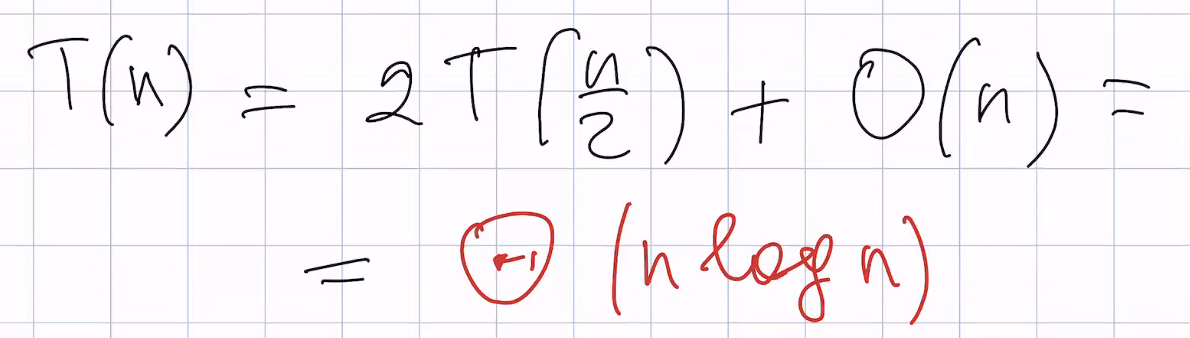 T(n) = 2T(n/2) + O(n) =
= Θ(n log n)